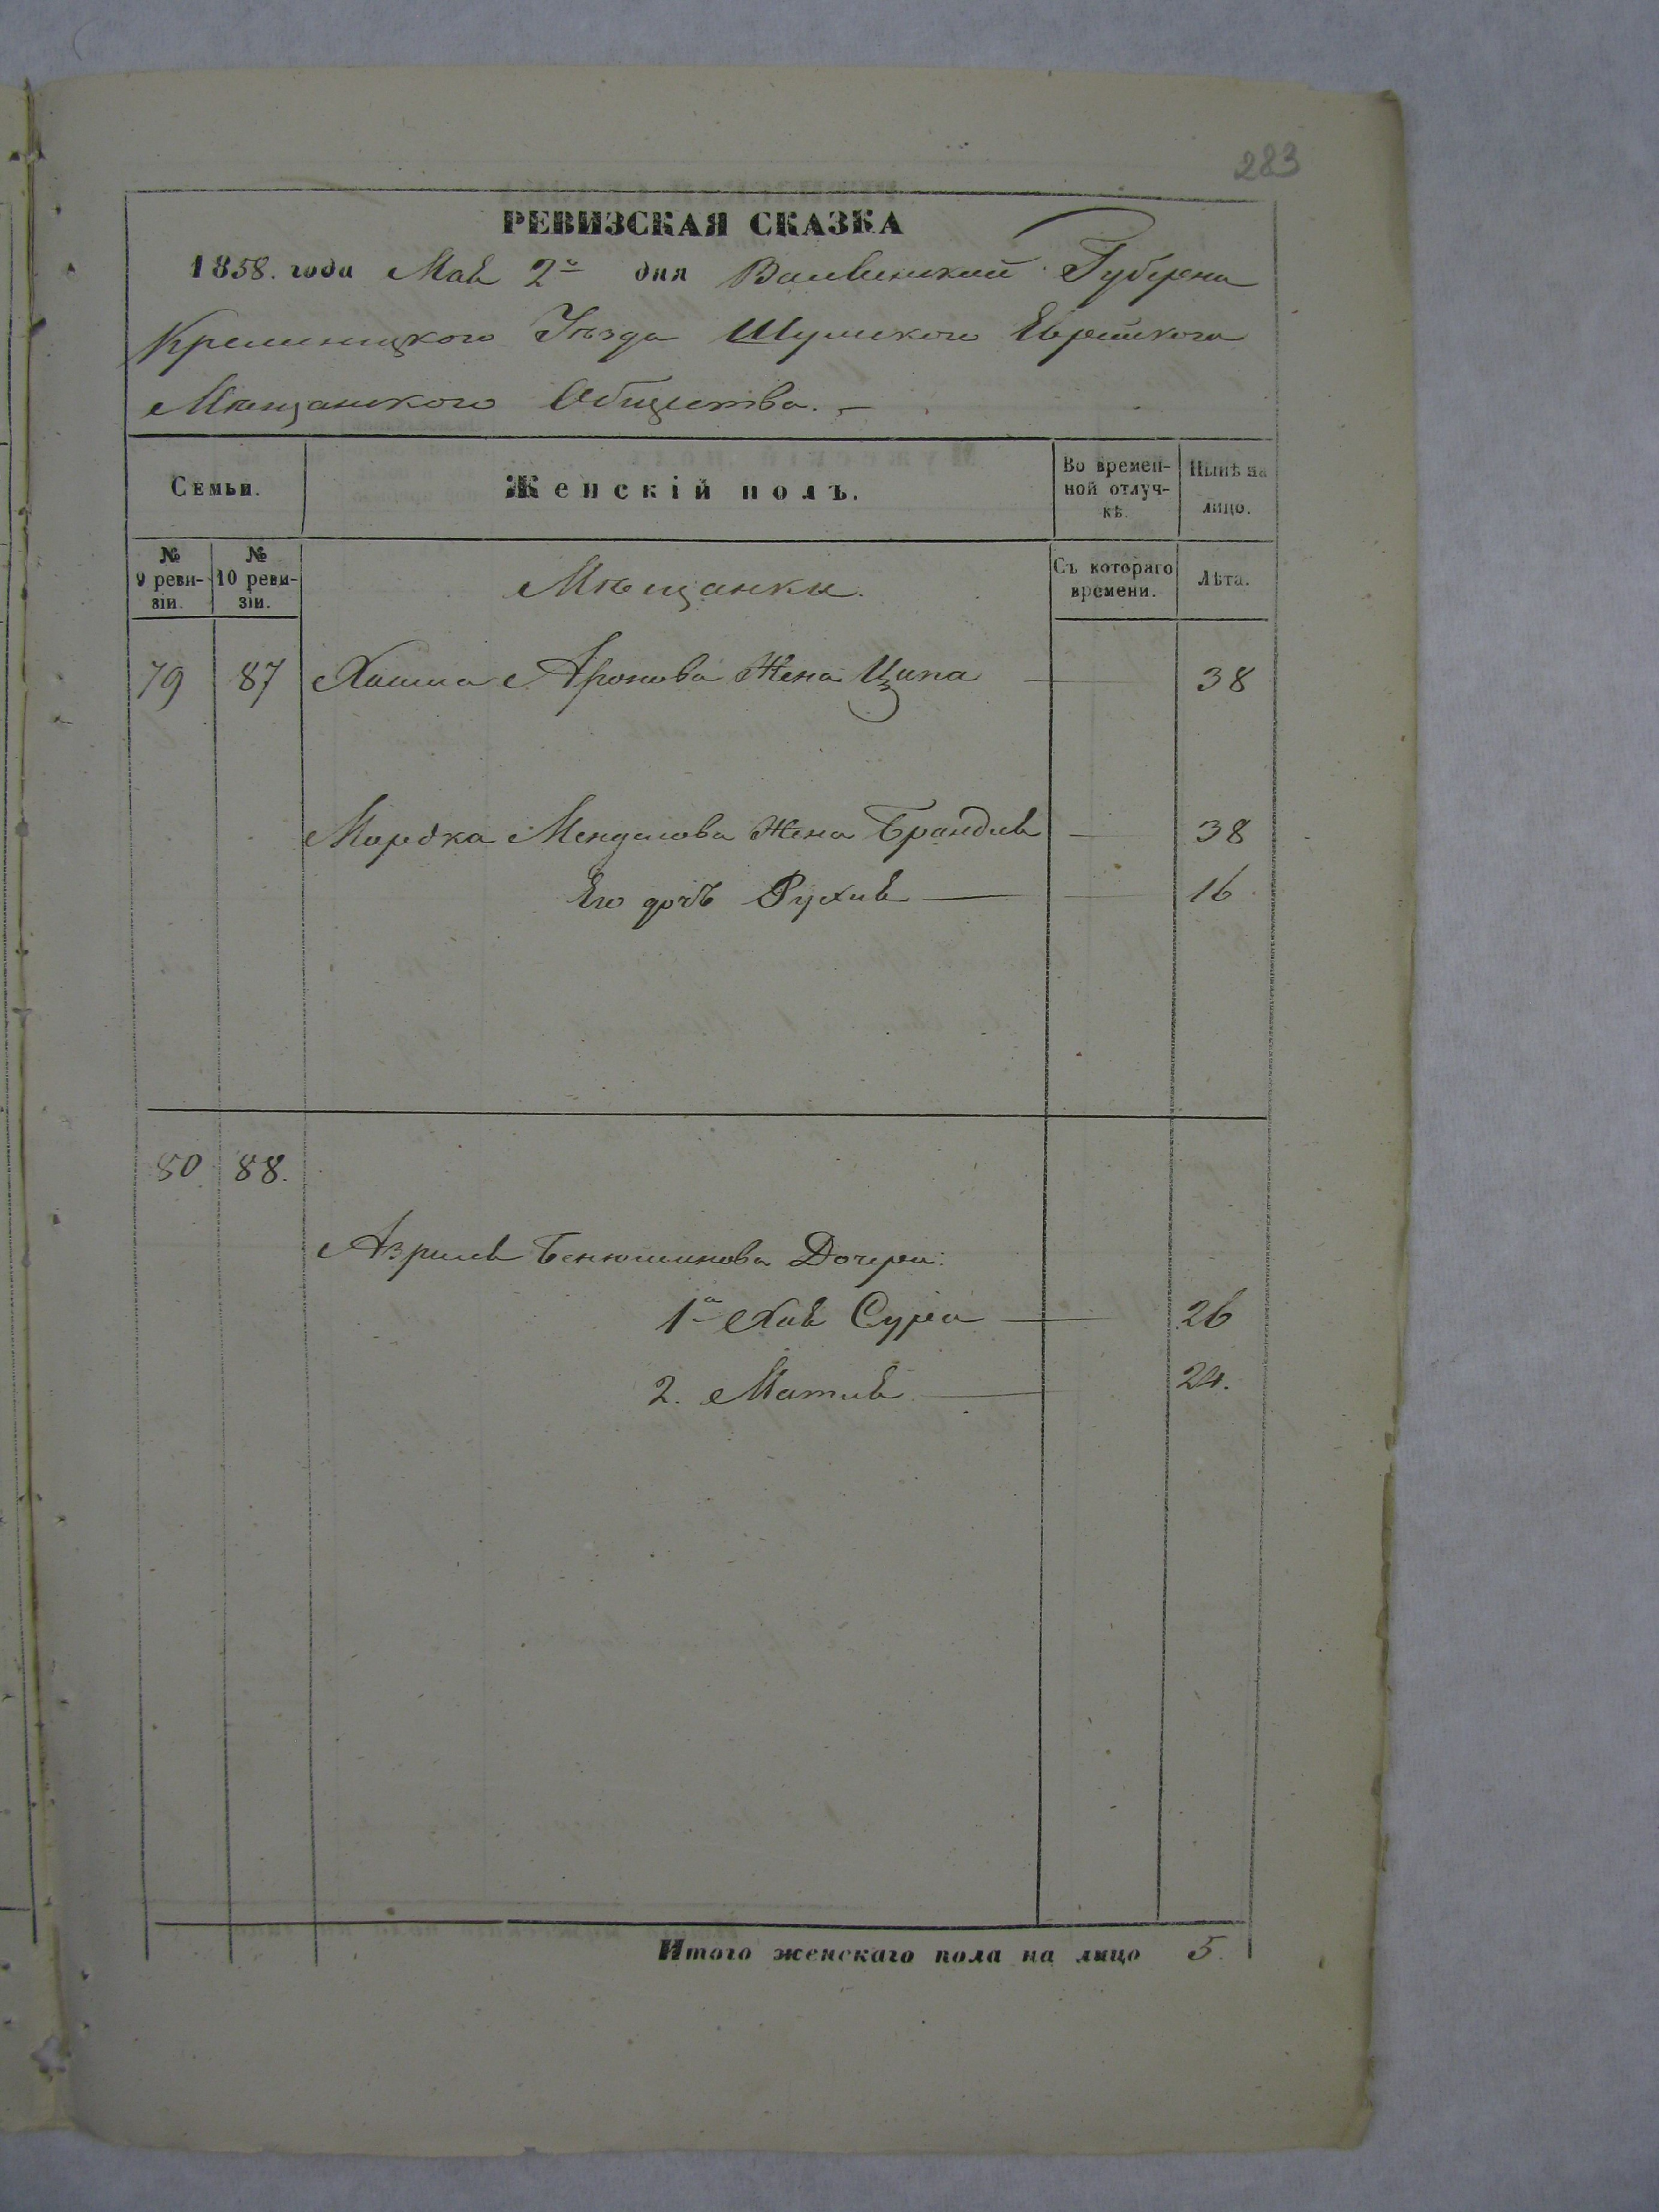 283
РЕВИЗСКАЯ СКАЗКА
1858. года Мая 2го дня Волынской Губерни
Кременецкого Уѣзда Шумского Еврейского
Мѣщанского Общества. –
Семьи.
Женскій полъ.
Во времен-
ной отлуч-
кѣ.
Нынѣ на
лицо.
№
9 реви-
зіи.
№
10 реви-
зіи.
Мѣщанки.
Съ котораго
времени.
Лѣта.
79 87 Аронова Жена Ципа — 38
Мордка Менделова Жена Брандля — 38
Его дочь Рухля — 16
80. 88.
Азриля Бенюминова Дочери:
1я Хая Сура — 26
2. Матля — 24.
Итого женскаго пола на лицо 5.